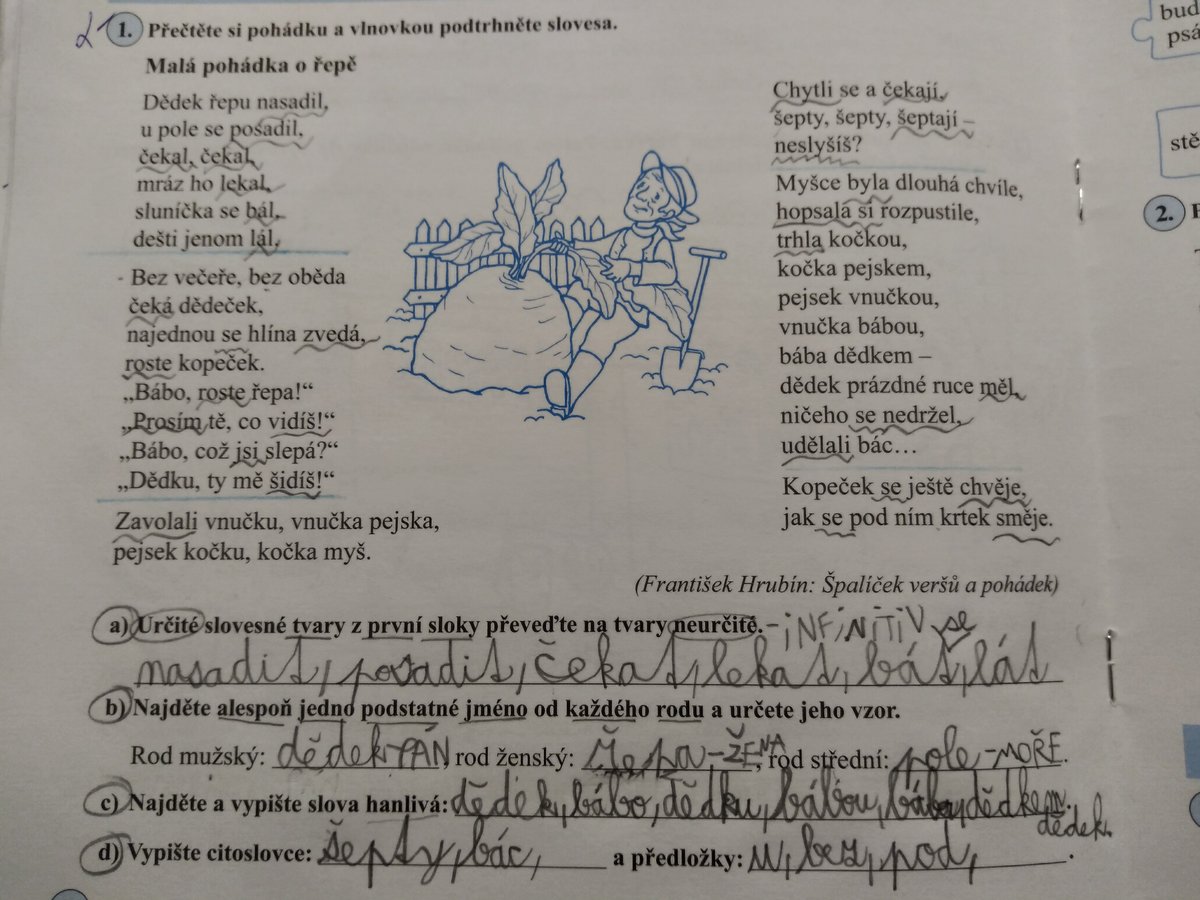 1. Přečtěte si pohádku a vlnovkou podtrhněte slovesa.
Malá pohádka o řepě
Dědek řepu nasadil,
u pole se posadil,
čekal, čekal,
mráz ho lekal,
sluníčka se bál,
dešti jenom lál,
- Bez večeře, bez oběda
čeká dědeček,
najednou se hlína zvedá,
roste kopeček.
„Bábo, roste řepa!“
„Prosím tě, co vidíš!“
„Bábo, což jsi slepá?“
„Dědku, ty mě šidíš!“
Zavolali vnučku, vnučka pejska,
pejsek kočku, kočka myš.
Chytli se a čekají,
šepty, šepty, šeptají –
neslyšíš?
Myšce byla dlouhá chvíle,
hopsala si rozpustile,
trhla kočkou,
kočka pejskem,
pejsek vnučkou,
vnučka bábou,
bába dědkem –
dědek prázdné ruce měl,
ničeho se nedržel,
udělali bác…
Kopeček se ještě chvěje,
jak se pod ním krtek směje.
(František Hrubín: Špalíček veršů a pohádek)
a) Určité slovesné tvary z první sloky převeďte na tvary neurčité. – INFINITIV se
nasadit, posadit, čekat, lekat, bát, lát
b) Najděte alespoň jedno podstatné jméno od každého rodu a určete jeho vzor.
Rod mužský: dědek-PÁN, rod ženský: řepa-ŽENA, rod střední: pole-MOŘE.
c) Najděte a vypište slova hanlivá: dědek, bábo, dědku, bábou, bába, dědkem.
dědek.
d) Vypište citoslovce: šepty, bác, a předložky: u, bez, pod, .
bud
psá
stě
2.